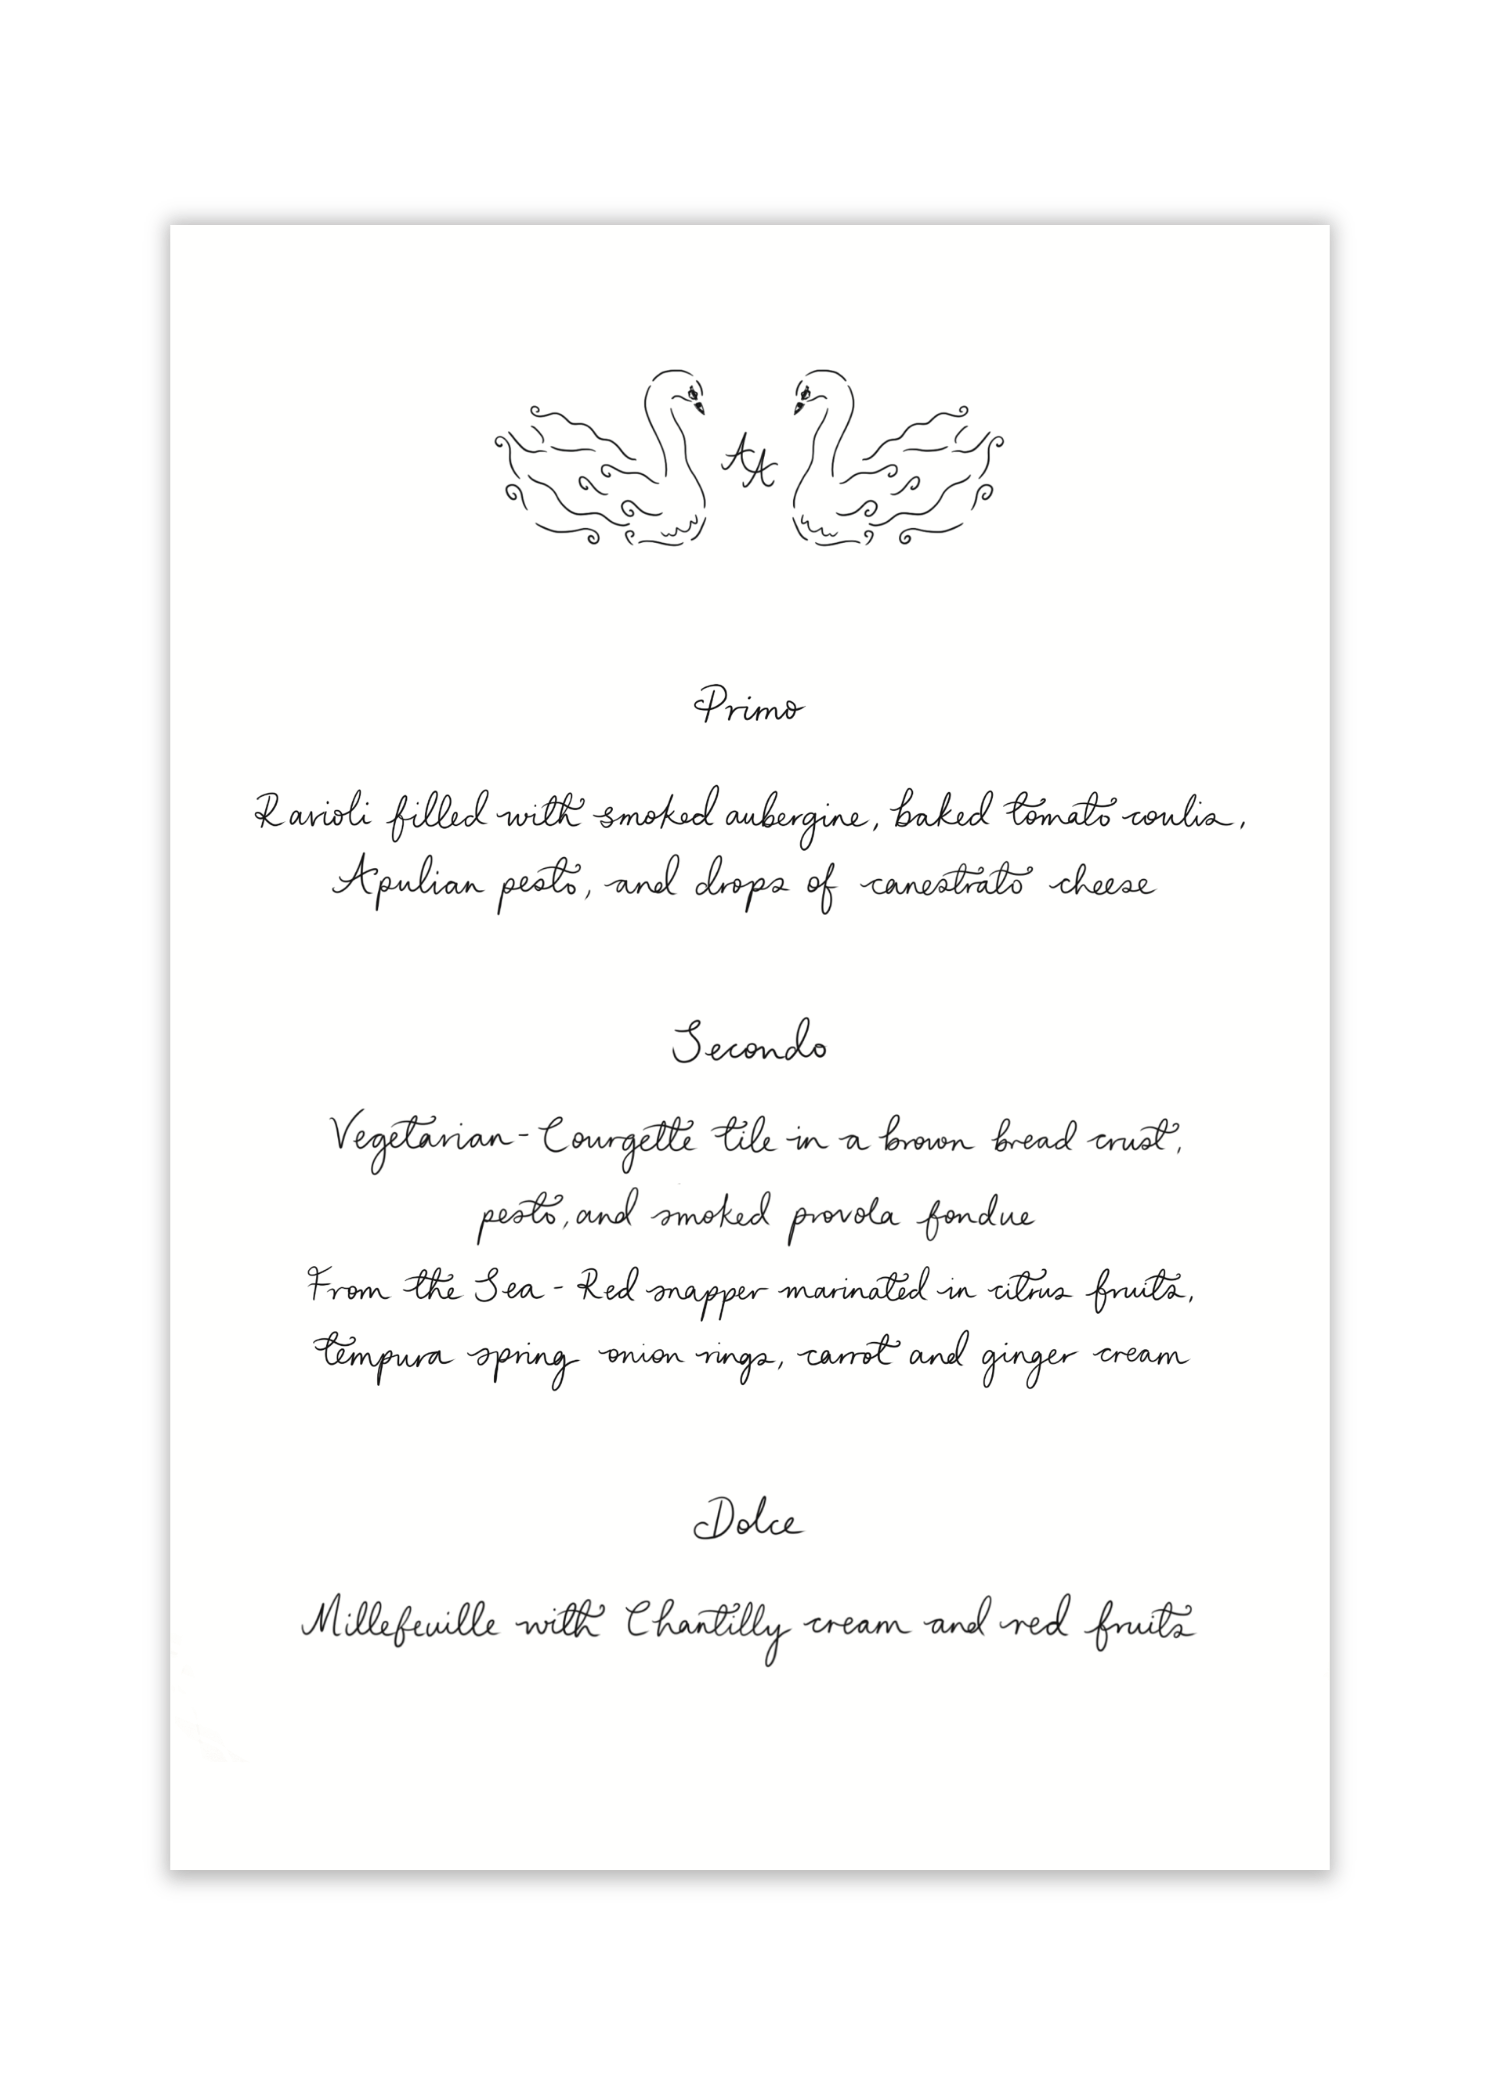 AA
Primo
Ravioli filled with smoked aubergine, baked tomato coulis,
Apulian pesto, and drops of canestrato cheese
Secondo
Vegetarian - Courgette tile in a brown bread crust,
pesto, and smoked provola fondue
From the Sea - Red snapper marinated in citrus fruits,
tempura spring onion rings, carrot and ginger cream
Dolce
Millefeuille with Chantilly cream and red fruits